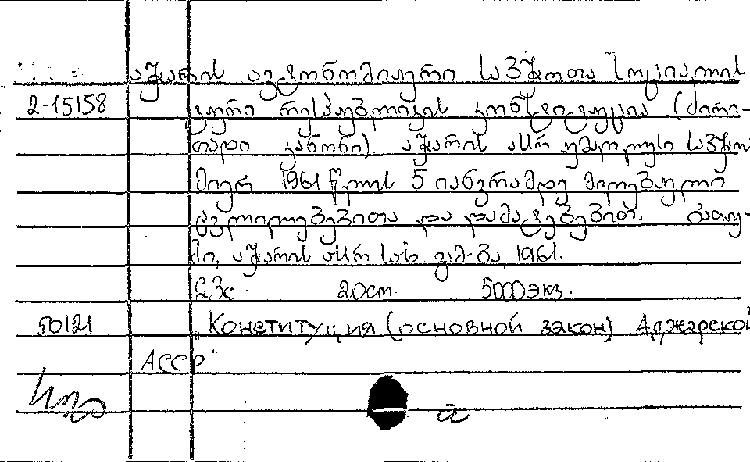 აჭარის ავტონომიური საბჭოთა სოციალის
2-15158 ტური რესპუბლიკის კონსტიტუცია (ძირი-
თადი კანონი). აჭარის ასსრ უმაღლესი საბჭოს
მიერ 1961 წლის 5 იანვრამდე მიღებული
ცვლილებებითა და დამატებებით. ბათუ-
მი, აჭარის ასსრ სახ. გამ-ბა, 1961.
20სთ. 5000 ეკზ.
50121 Конституция (основной закон) Аджарской
АССР.